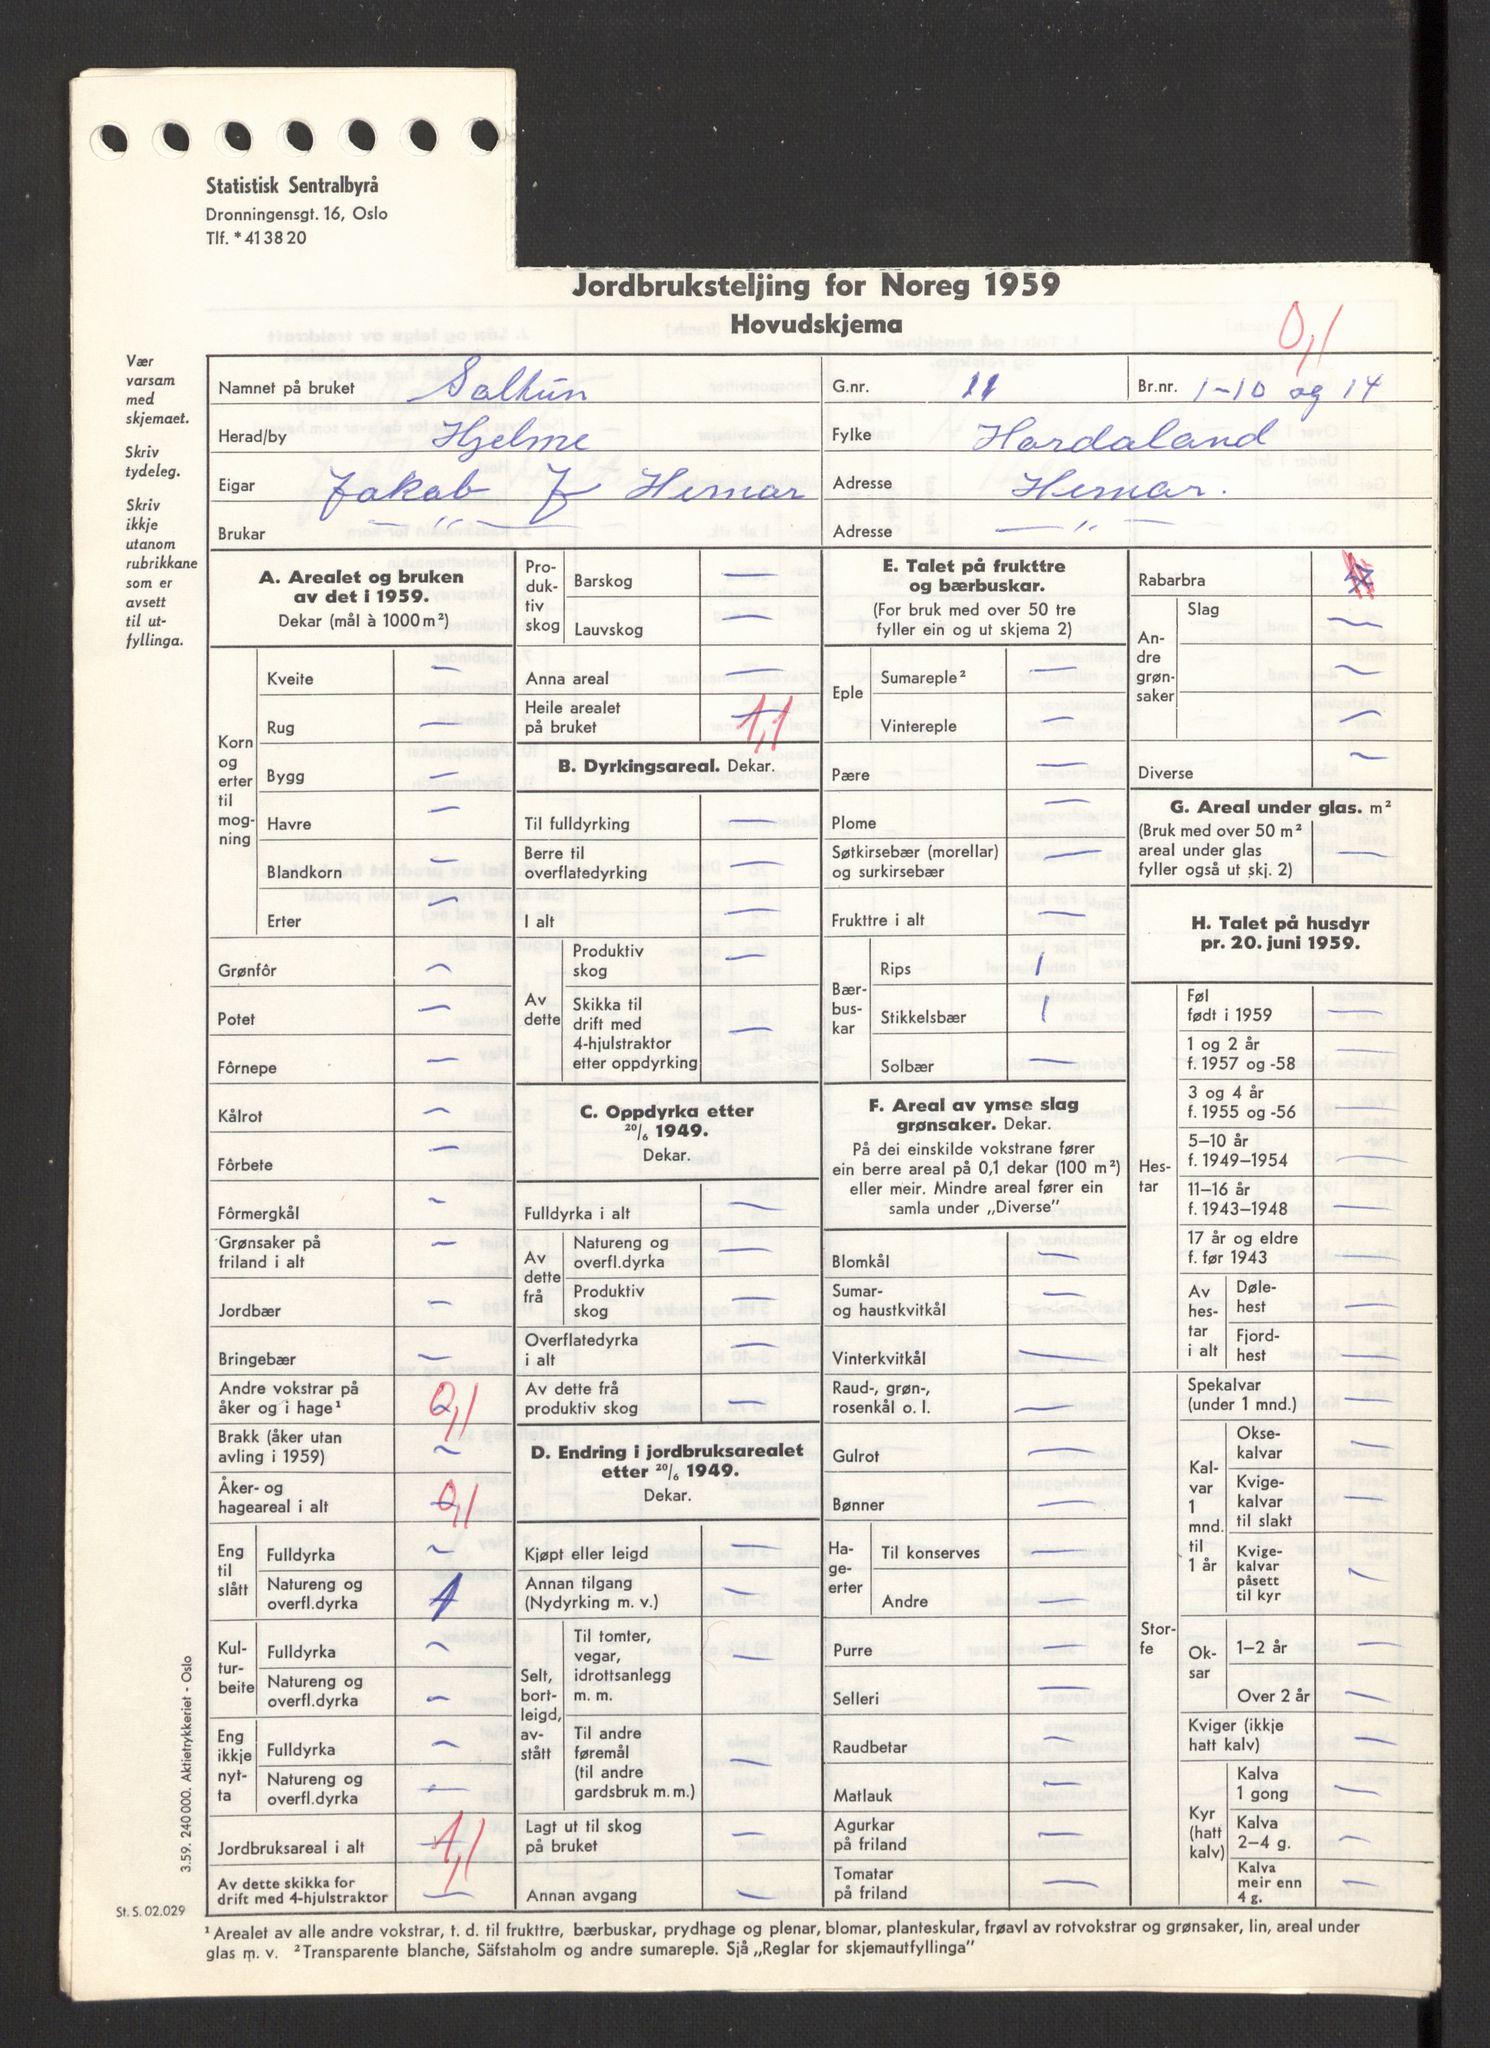 Statistisk Sentralbyrå
Dronningensgt. 16, Oslo
Tlf. *41 38 20
Jordbruksteljing for Noreg 1959
Hovudskjema
0,1
Vær
varsam
med
skjemaet.
Skriv
tydeleg.
Skriv
ikkje
utanom
rubrikkane
som er
avsett
til ut-
fyllinga.
Namnet på bruket Saltun G.nr. 11 Br.nr. 1-10 og 14
Herad/by Hjelme Fylke Hordaland
Eigar Jakob J Hernar Adresse Hernar.
Brukar — " — Adresse — " —
A. Arealet og bruken
av det i 1959.
Dekar (mål à 1000 m²)
Korn
og
erter
til
mog-
ning
Kveite —
Rug —
Bygg —
Havre —
Blandkorn —
Erter —
Grønfôr —
Potet —
Fôrnepe —
Kålrot —
Fôrbete —
Fôrmergkål —
Grønsaker på
friland i alt —
Jordbær —
Bringebær —
Andre vokstrar på
åker og i hage¹ 0,1
Brakk (åker utan
avling i 1959) —
Åker- og
hageareal i alt 0,1
Eng
til
slått
Fulldyrka —
Natureng og
overfl.dyrka 1
Kul-
tur-
beite
Fulldyrka —
Natureng og
overfl.dyrka —
Eng
ikkje
nyt-
ta
Fulldyrka —
Natureng og
overfl.dyrka —
Jordbruksareal i alt 1,1
Av dette skikka for
drift med 4-hjulstraktor —
Pro-
duk-
tiv
skog
Barskog —
Lauvskog —
Anna areal —
Heile arealet
på bruket 1,1
B. Dyrkingsareal. Dekar.
Til fulldyrking —
Berre til
overflatedyrking —
I alt —
Av
dette
Produktiv
skog —
Skikka til
drift med
4-hjulstraktor
etter oppdyrking —
C. Oppdyrka etter
20/6 1949.
Dekar.
Fulldyrka i alt —
Av
dette
frå
Natureng og
overfl.dyrka —
Produktiv
skog —
Overflatedyrka
i alt —
Av dette frå
produktiv skog —
D. Endring i jordbruksarealet
etter 20/6 1949.
Dekar.
Kjøpt eller leigd —
Annan tilgang
(Nydyrking m. v.) —
Selt,
bort-
leigd,
av-
stått
Til tomter,
vegar,
idrottsanlegg
m. m. —
Til andre
føremål
(til andre
gardsbruk m. m.) —
Lagt ut til skog
på bruket —
Annan avgang —
E. Talet på frukttre
og bærbuskar.
(For bruk med over 50 tre
fyller ein og ut skjema 2)
Eple
Sumareple² —
Vintereple —
Pære —
Plome —
Søtkirsebær (morellar)
og surkirsebær —
Frukttre i alt —
Bær-
bus-
kar
Rips 1
Stikkelsbær 1
Solbær —
F. Areal av ymse slag
grønsaker. Dekar.
På dei einskilde vokstrane fører
ein berre areal på 0,1 dekar (100 m²)
eller meir. Mindre areal fører ein
samla under „Diverse"
Blomkål —
Sumar-
og haustkvitkål —
Vinterkvitkål —
Raud-, grøn-,
rosenkål o. l. —
Gulrot —
Bønner —
Ha-
ge-
erter
Til konserves —
Andre —
Purre —
Selleri —
Raudbetar —
Matlauk —
Agurkar
på friland —
Tomatar
på friland —
Rabarbra
An-
dre
grøn-
saker
Slag —
—
—
Diverse —
G. Areal under glas. m²
(Bruk med over 50 m²
areal under glas
fyller også ut skj. 2) —
H. Talet på husdyr
pr. 20. juni 1959.
Hes-
tar
Føl
født i 1959 —
1 og 2 år
f. 1957 og -58 —
3 og 4 år
f. 1955 og -56 —
5–10 år
f. 1949–1954 —
11–16 år
f. 1943–1948 —
17 år og eldre
f. før 1943 —
Av
hes-
tar
i alt
Døle-
hest —
Fjord-
hest —
Stor-
fe
Spekalvar
(under 1 mnd.) —
Kal-
var
1
mnd.
til
1 år
Okse-
kalvar —
Kvige-
kalvar
til slakt —
Kvige-
kalvar
påsett
til kyr —
Ok-
sar
1–2 år —
Over 2 år —
Kviger (ikkje
hatt kalv) —
Kyr
(hatt
kalv)
Kalva
1 gong —
Kalva
2–4 g. —
Kalva
meir enn
4 g. —
3.59. 240 000. Aktietrykkeriet - Oslo
St. S. 02.029
¹ Arealet av alle andre vokstrar, t. d. til frukttre, bærbuskar, prydhage og plenar, blomar, planteskular, frøavl av rotvokstrar og grønsaker, lin, areal under
glas m. v. ² Transparente blanche, Säfstaholm og andre sumareple. Sjå „Reglar for skjemautfyllinga"